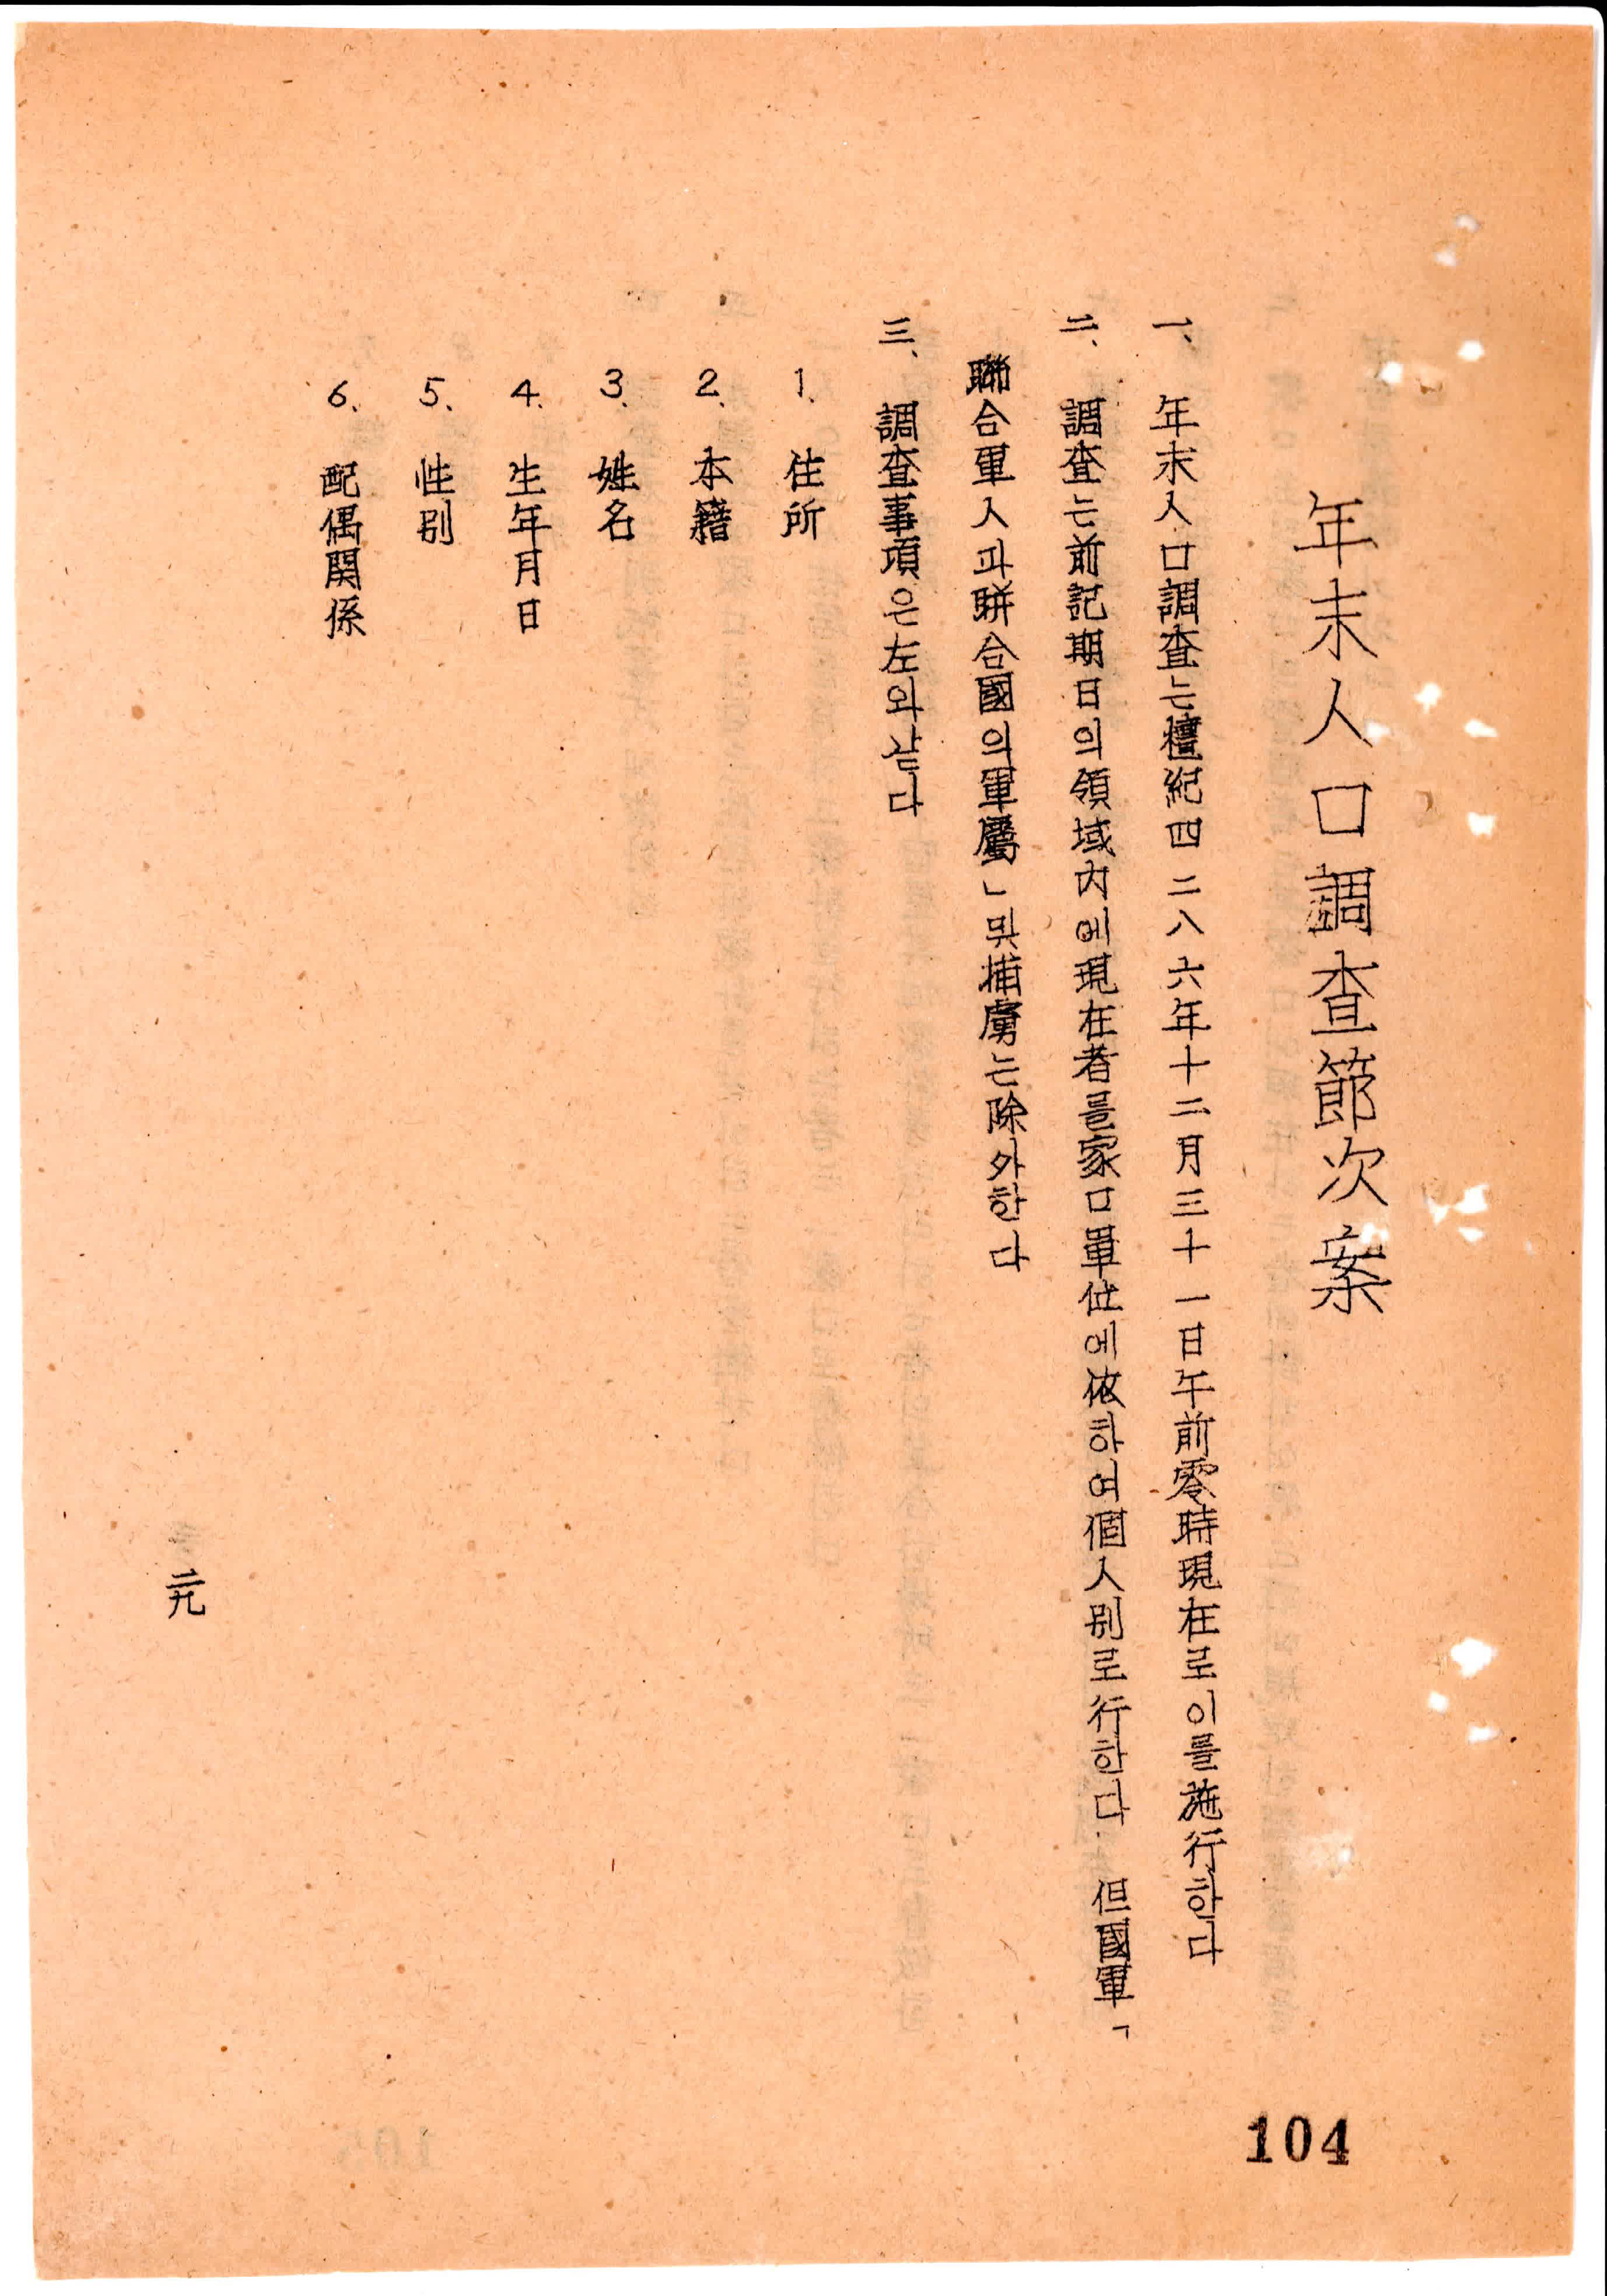 年末人口調査節次案
一、 年末人口調査는檀紀四二八六年十二月三十一日午前零時現在로이를施行한다
二、 調査는前記期日의領域內에現在者를家口單位에依하여個人別로行한다 但國軍「
聯合軍人과聯合國의軍屬」및捕虜는除外한다
三、 調査事項은左와같다
1、 住所
2、 本籍
3、 姓名
4、 生年月日
5、 性別
6、 配偶関係
104